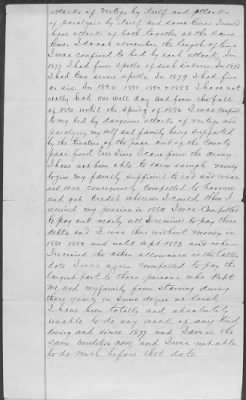 attacks of vertigo by itself and attacks
of paralysis by itself and some times I would
have attacks of both together at the same
time. I do not remember the length of time
I was confined to bed by each attack, In
1877 I had five spells of such sickness. In 1878
I had five severe spells. In 1879 I had five
or six. In 1880 1881 1882 & 1883 I have not
really had one well day and from the fall
of 1881 until the spring of 1882 I was confined
to my bed by dangerous attacks of vertigo and
paralysis my self and family being supported
by the trustees of the poor out of the County
poor fund Ever since I came from the army
I have not been able to earn enough money
to give my family sufficient to eat and wear
and were consequently compelled to borrow
and ask Credit wherever I could. When I
received my pension in 1880 I was compelled
to pay out nearly all I received to pay these
debts and I was thus without money in
1881 1882 and until Sept 1883 and when
I received the other allowance at the latter
date I was again compelled to pay the
largest part to those persons who kept
me and my family from starving during
those years in some degree at least.
I have been totally and absolutely
unable to do any work of any kind
during and since 1877 and I am in the
same condition now, and I was not able
to do much before that date